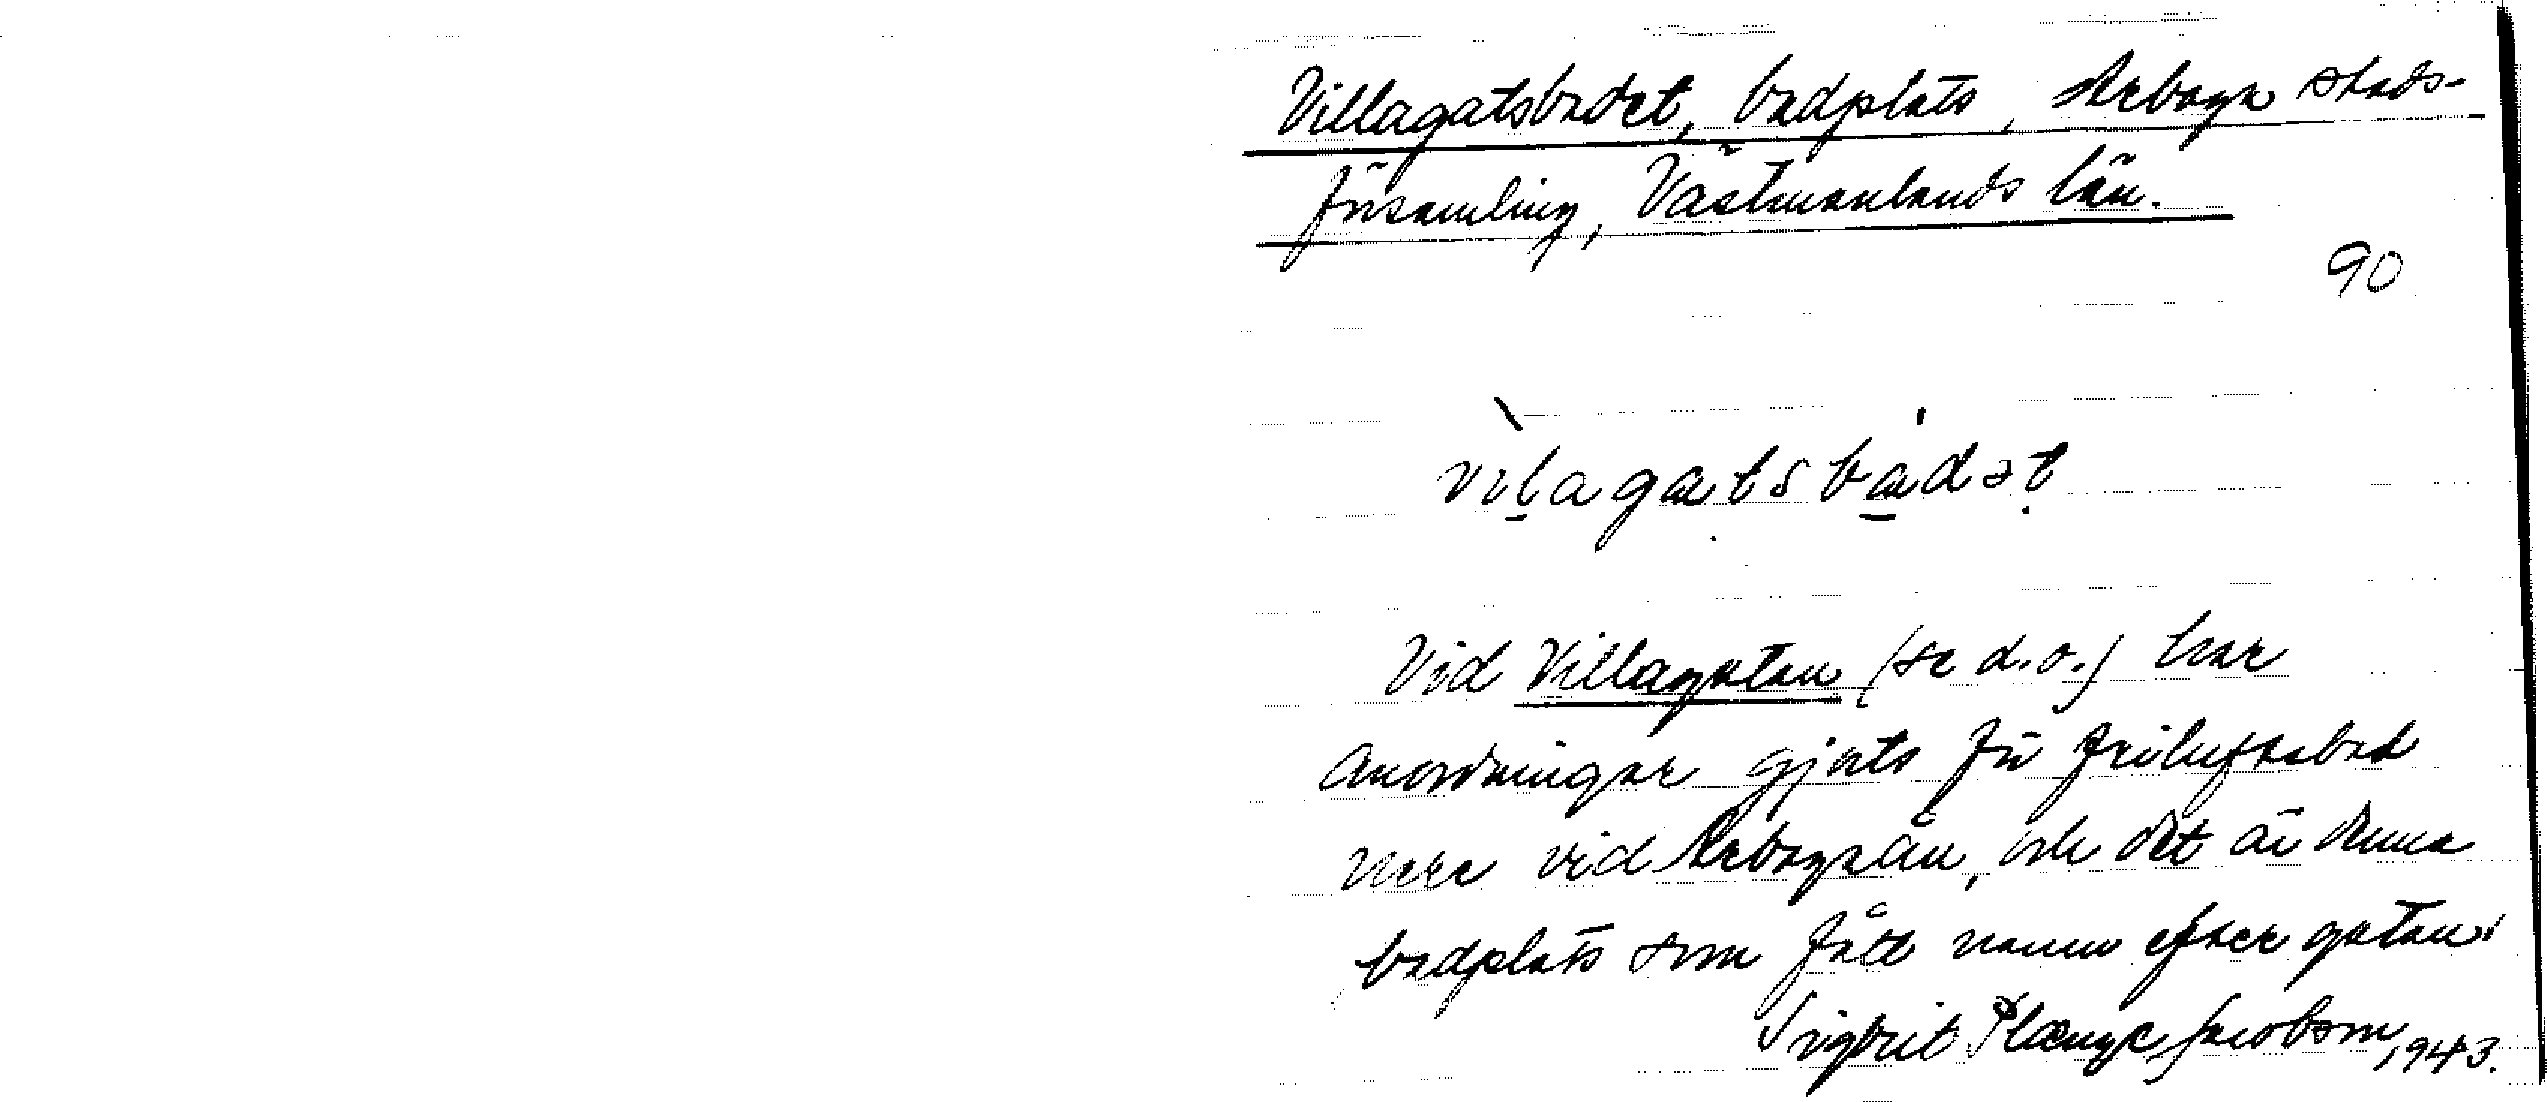 Villagatsbadet, badplats, Arboga stads-
församling, Västmanlands län.
90
vìlagatsbádət
Vid Villagatan (se d.o.) har
anordningar gjorts för friluftsbad
nere vid Arbogaån, och det är denna
badplats som fått namn efter gatan.
Sigbrit Plænge Jacobson 1943.